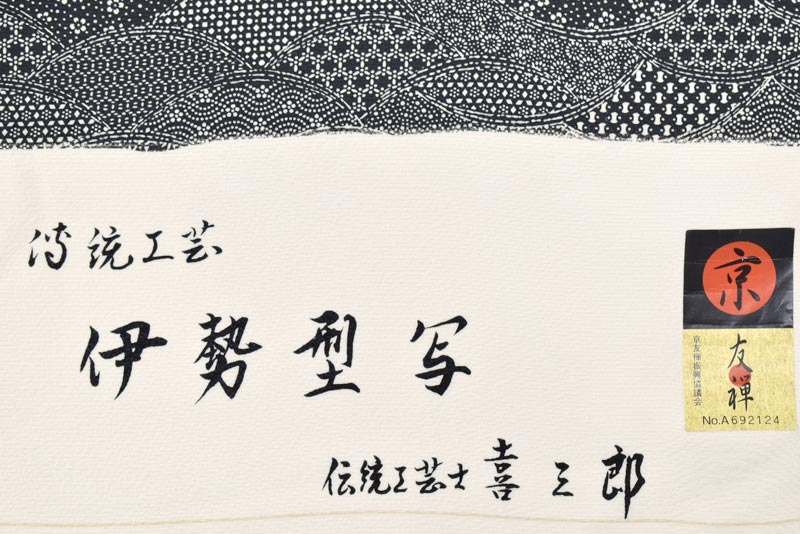 傳統工芸
伊勢型写
伝統工芸士 喜三郎
京
友禅
京友禅振興協議会
No.A692124